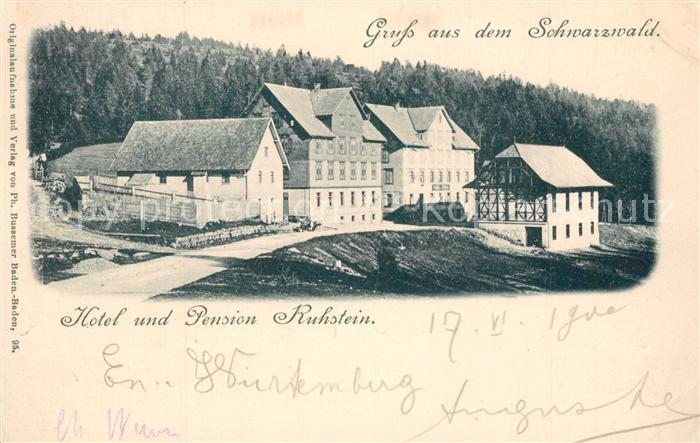 Gruß aus dem Schwarzwald.
Originalaufnahme und Verlag von Ph. Bussemer Baden-Baden, 95.
Hotel und Pension Ruhstein.
17. VI. 1900
En. Württemberg
Auguste